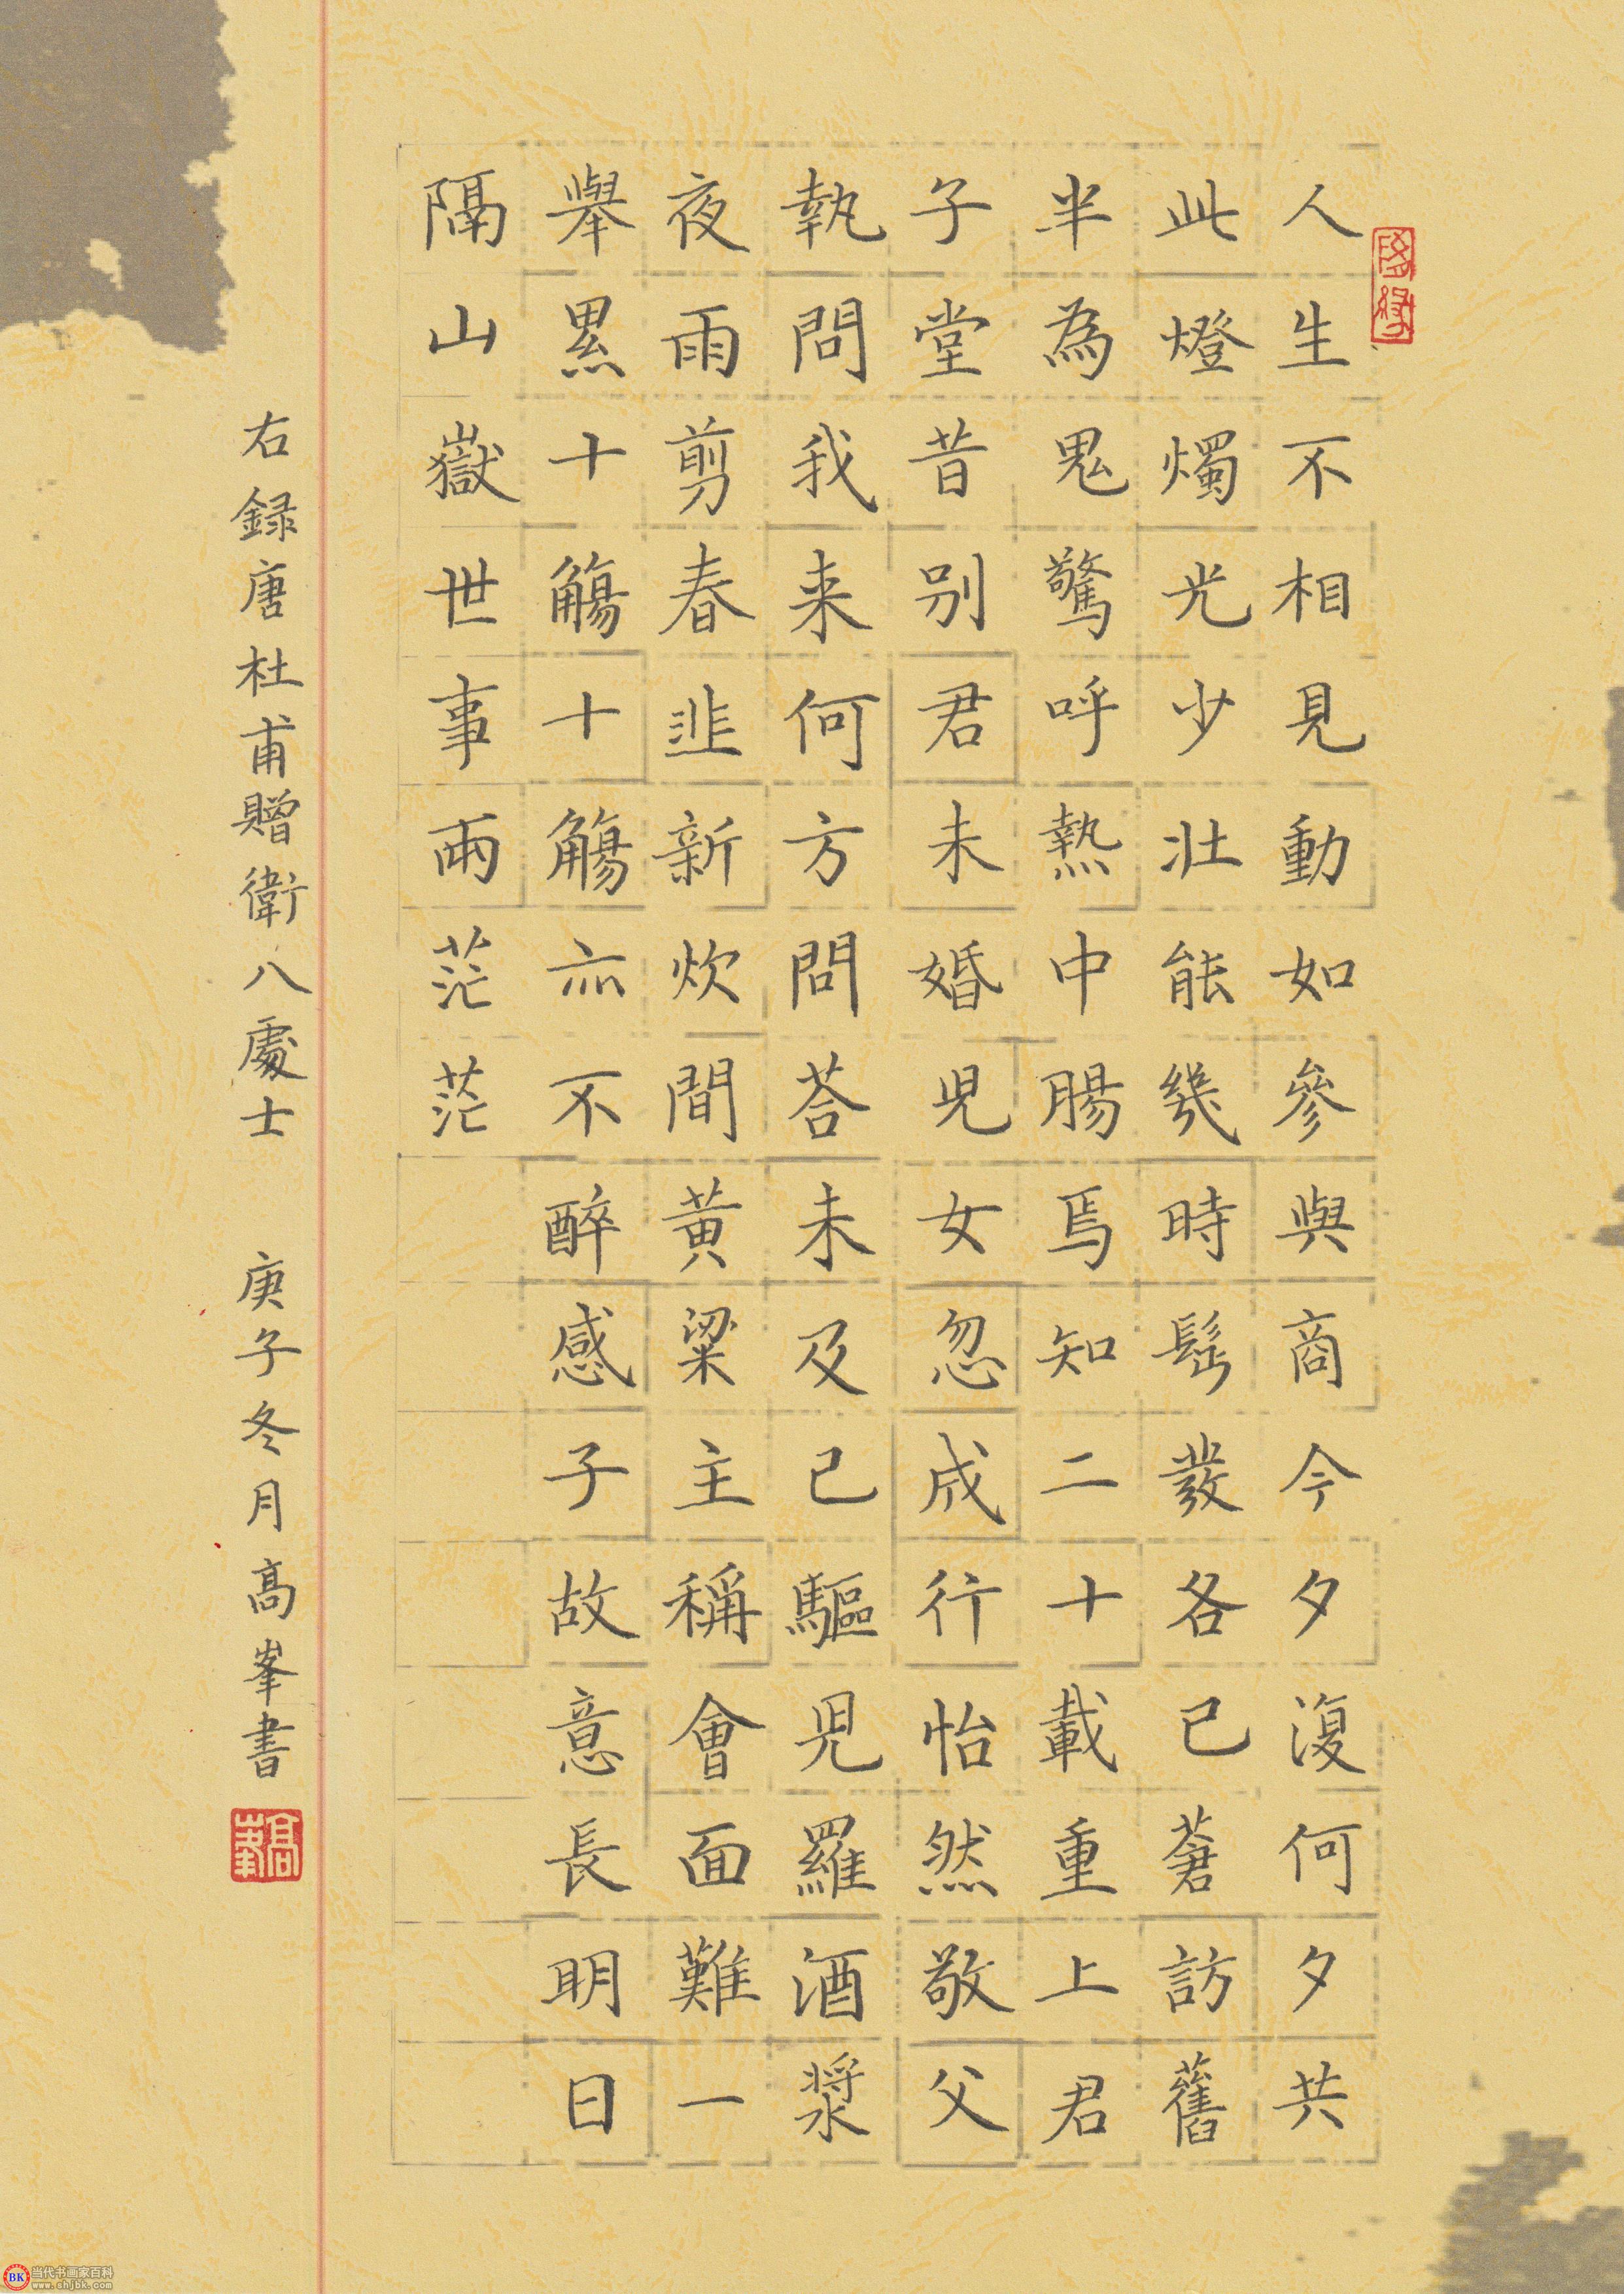 人生不相見動如參與商今夕復何夕共
此燈燭光少壯能幾時髩發各已蒼訪舊
半為鬼驚呼熱中腸焉知二十載重上君
子堂昔别君未婚兒女忽成行怡然敬父
執問我来何方問荅未及已驅兒羅酒漿
夜雨剪春韭新炊間黃粱主稱會面難一
舉累十觴十觴亦不醉感子故意長明日
隔山嶽世事兩茫茫
右録唐杜甫贈衛八處士 庚子冬月高峯書
高峯
当代书画家百科
www.shjbk.com
BK